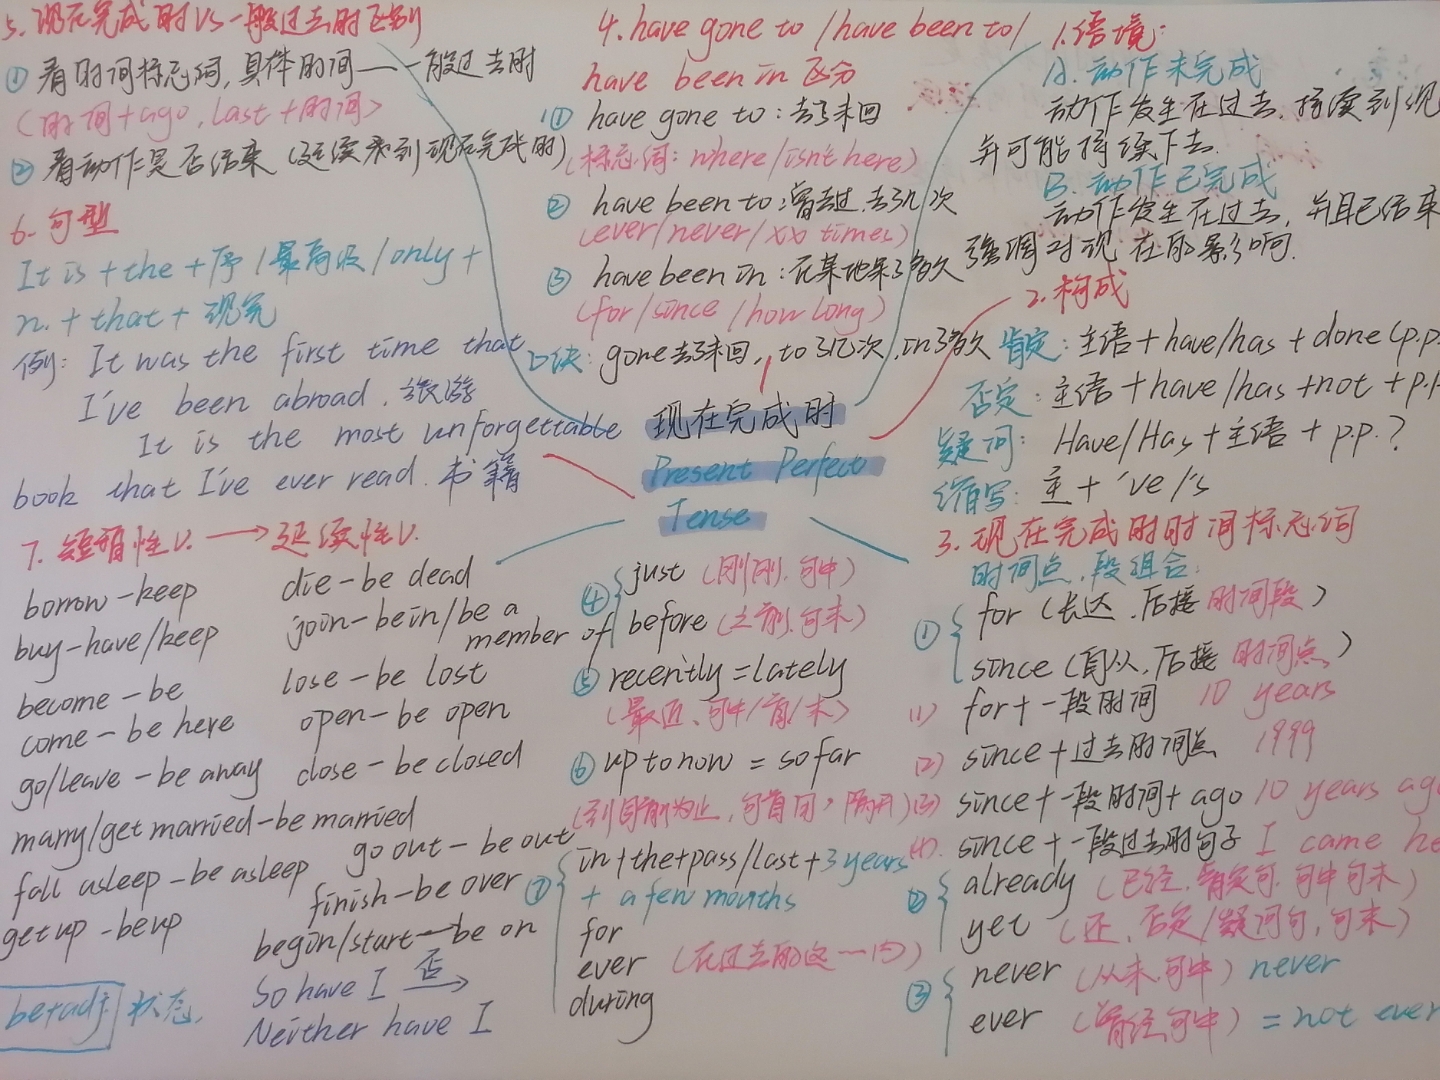 5. 现在完成时 VS 一般过去时区别
① 看时间标志词,具体时间——一般过去时
(时间+ago, last+时间)
② 看动作是否结束 (延续来到现在完成时)
6. 句型
It is + the + 序 / 最高级 / only +
n. + that + 现完
例: It was the first time that
I've been abroad. 旅游
It is the most unforgettable
book that I've ever read. 书籍
7. 短暂性v. → 延续性v.
borrow - keep
buy - have/keep
become - be
come - be here
go/leave - be away
marry/get married - be married
fall asleep - be asleep
get up - be up
be+adj. 状态.
die - be dead
join - be in/be a
member of
lose - be lost
open - be open
close - be closed
go out - be out
finish - be over
begin/start - be on
So have I 否→
Neither have I
4. have gone to / have been to /
have been in 区分
① have gone to : 去了未回
(标志词: where/isn't here)
② have been to : 曾去过,去了几次
(ever/never/xx times)
③ have been in : 在某地呆了多久
(for/since/how long)
口诀: gone去了未回, to了几次, in了多久
现在完成时
Present Perfect
Tense
1. 语境:
A. 动作未完成
动作发生在过去,持续到现
并可能持续下去.
B. 动作已完成
动作发生在过去, 并且已结束
强调对现在的影响.
2. 构成
肯定: 主语 + have/has + done (p.p.
否定: 主语 + have/has + not + p.p
疑问: Have/Has + 主语 + p.p. ?
缩写: 主 + 've/'s
3. 现在完成时时间标志词
时间点, 段组合:
① for (长达, 后接时间段)
since (自从, 后接时间点)
(1) for + 一段时间 10 years
(2) since + 过去时间点 1999
(3) since + 一段时间 + ago 10 years ago
(4) since + 一段过去时句子 I came he
② already (已经, 肯定句, 句中句末)
yet (还, 否定/疑问句, 句末)
③ never (从未, 句中) never
ever (曾经, 句中) = not ever
④ just (刚刚, 句中)
before (之前, 句末)
⑤ recently = lately
(最近, 句中/首/末)
⑥ up to now = so far
(到目前为止, 句首用, 隔开)
⑦ in+the+pass/last+3 years
+ a few months
for
ever (在过去的这一内)
during